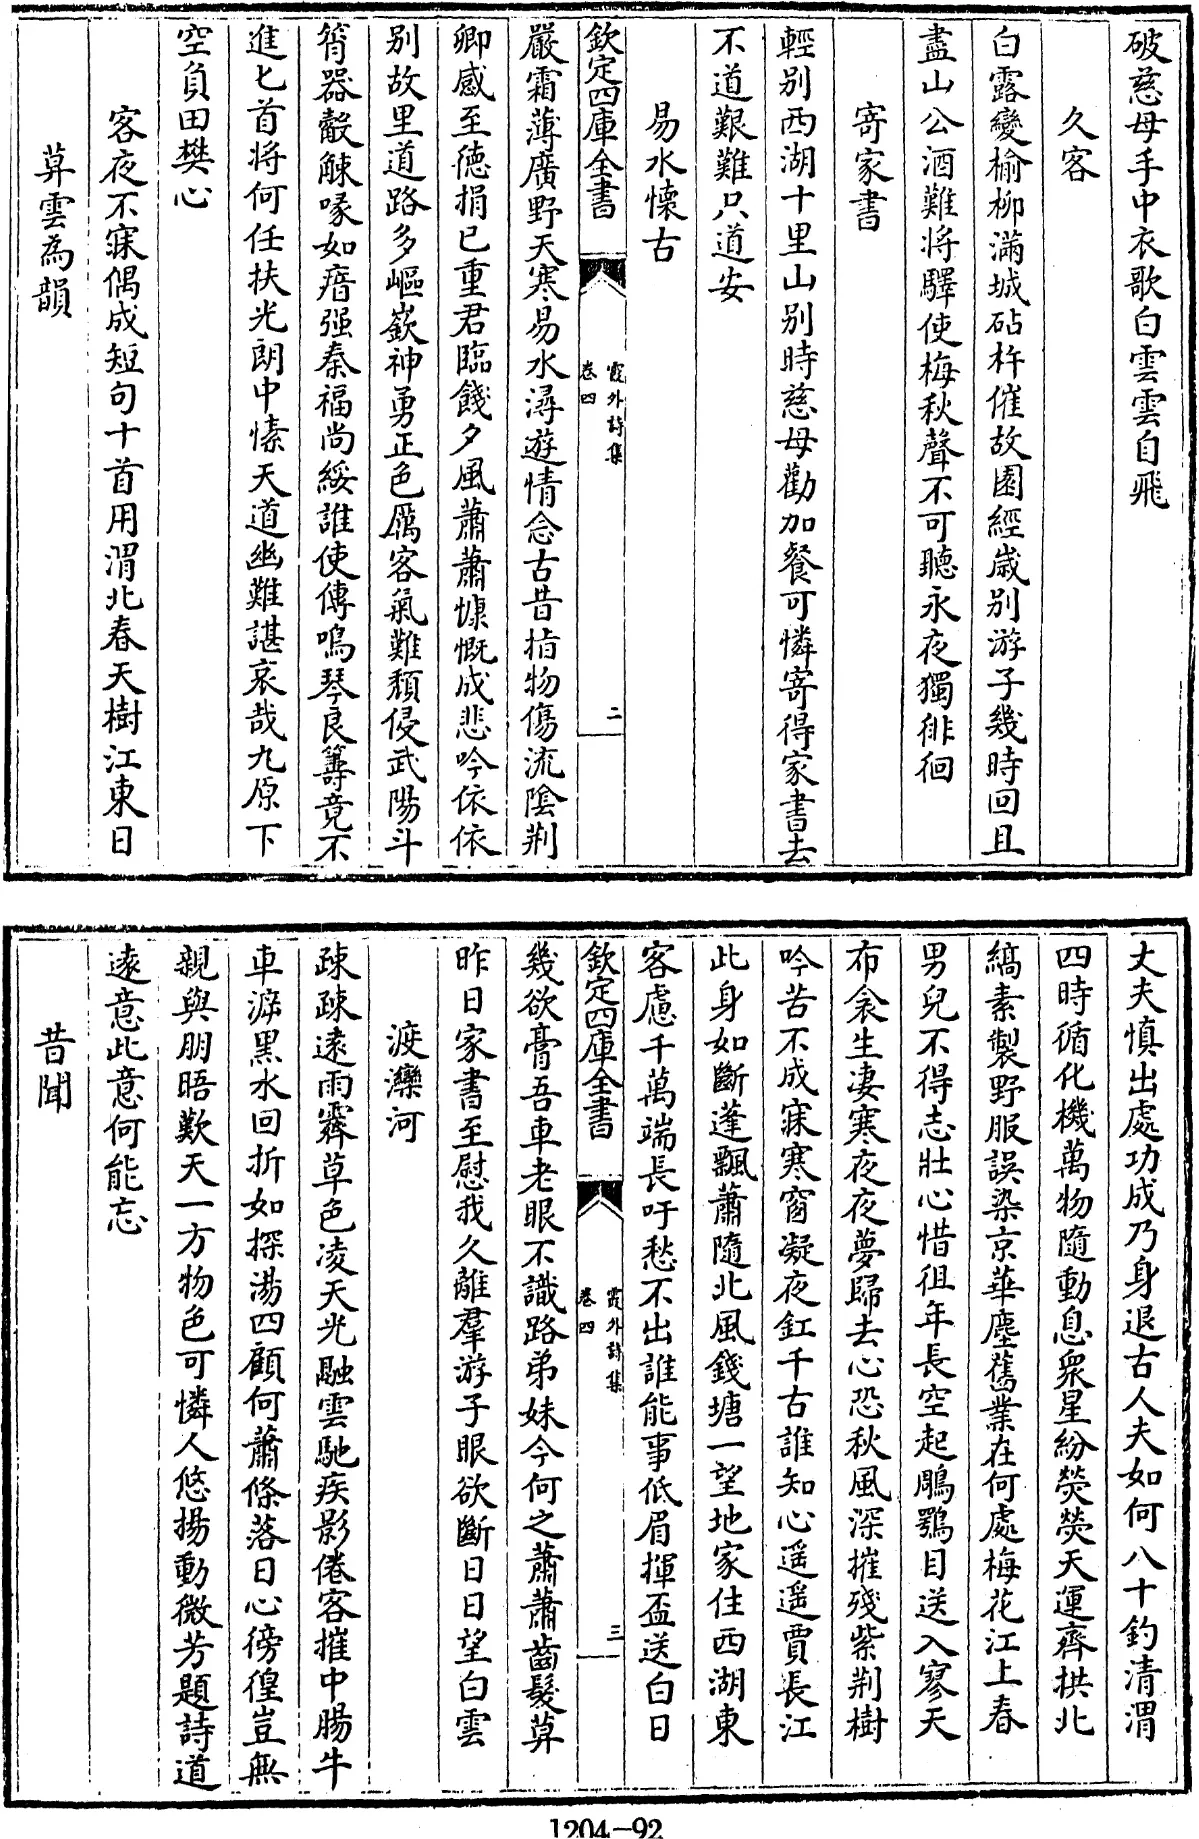 破慈母手中衣歌白雲雲自飛
久客
白露變榆柳滿城砧杵催故園經歲别游子幾時回且
盡山公酒難將驛使梅秋聲不可聽永夜獨徘徊
寄家書
輕别西湖十里山别時慈母勸加餐可憐寄得家書去
不道艱難只道安
易水懐古
欽定四庫全書
霞外詩集
卷四
二
嚴霜薄廣野天寒易水潯遊情念古昔指物傷流隂荆
卿感至徳捐已重君臨餞夕風蕭蕭慷慨成悲吟依依
别故里道路多嶇嶔神勇正色厲客氣難頽侵武陽斗
筲器觳觫喙如瘖强秦福尚綏誰使傳鳴琴良籌竟不
進匕首將何任扶光朗中愫天道幽難諶哀哉九原下
空負田樊心
客夜不寐偶成短句十首用渭北春天樹江東日
暮雲為韻
丈夫慎出處功成乃身退古人夫如何八十釣清渭
四時循化機萬物隨動息衆星紛熒熒天運齊拱北
縞素製野服誤染京華塵舊業在何處梅花江上春
男兒不得志壯心惜徂年長空起鵰鶚目送入寥天
布衾生凄寒夜夜夢歸去心恐秋風深摧殘紫荆樹
吟苦不成寐寒窗凝夜釭千古誰知心遥遥賈長江
此身如斷蓬飄蕭隨北風錢塘一望地家住西湖東
客慮千萬端長吁愁不出誰能事低眉揮盃送白日
欽定四庫全書
霞外詩集
卷四
三
幾欲膏吾車老眼不識路弟妹今何之蕭蕭齒髪暮
昨日家書至慰我久離羣游子眼欲斷日日望白雲
渡灤河
疎疎逺雨霽草色凌天光融雲馳疾影倦客摧中腸牛
車淤黑水回折如探湯四顧何蕭條落日心徬徨豈無
親與朋晤歎天一方物色可憐人悠揚動微芳題詩道
逺意此意何能忘
昔聞
1204-92